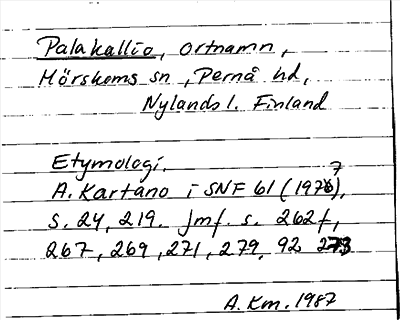 Palakallio, ortnamn,
Mörskoms sn, Pernå hd,
Nylands l. Finland
Etymologi.
A. Kartano i SNF 61 (1977),
s. 24, 219. Jmf. s. 262 f,
267, 269, 271, 279, 92 273
A. Km. 1987